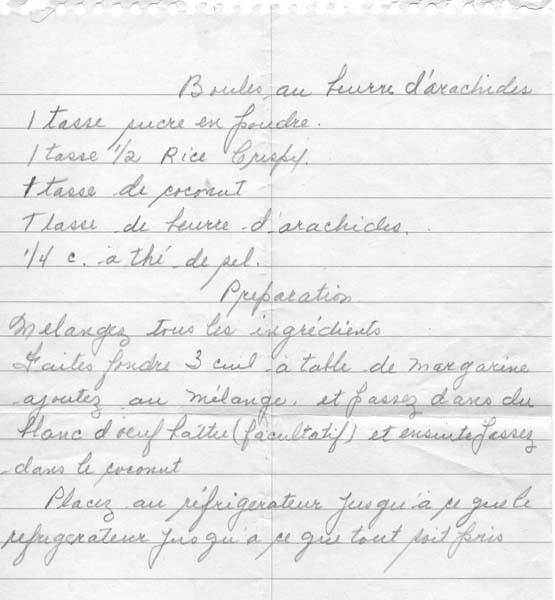 Boules au beurre d'arachides
1 tasse sucre en poudre.
1 tasse 1/2 Rice Crispy.
1 tasse de coconut
1 tasse de beurre d'arachides.
1/4 c. à thé de sel.
Preparation
Mélangez tous les ingrédients
Faites fondre 3 cuil à table de margarine
ajoutez au mélange. et passez dans du
blanc d'oeuf battu (facultatif) et ensuite passez
dans le coconut
Placez au réfrigerateur jusqu'à ce que le
refrigerateur jusqu'a ce que tout soit pris